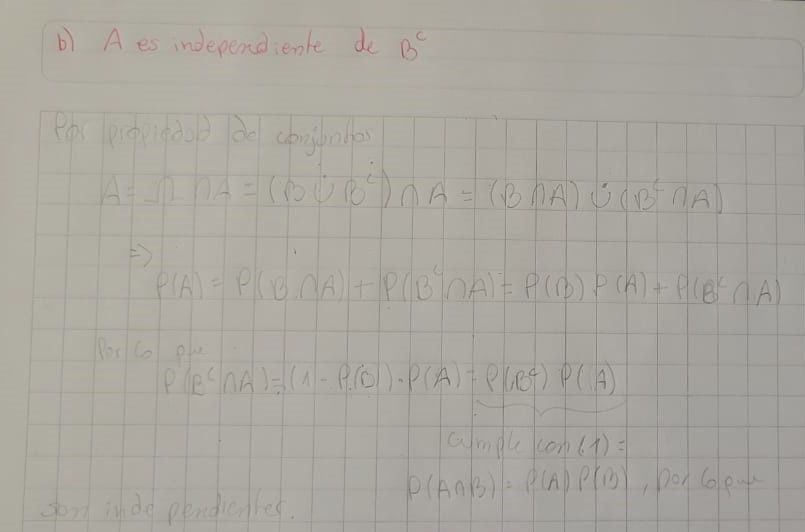 b) A es independiente de Bᶜ
Por propiedad de conjuntos
A = Ω ∩ A = (B ∪̇ Bᶜ) ∩ A = (B ∩ A) ∪̇ (Bᶜ ∩ A)
=>
P(A) = P(B ∩ A) + P(Bᶜ ∩ A) = P(B) P(A) + P(Bᶜ ∩ A)
Por lo que
P(Bᶜ ∩ A) = (1 - P(B)) · P(A) = P(Bᶜ) P(A)
cumple con (1) =
P(A∩B) = P(A) P(B), por lo que
son independientes.